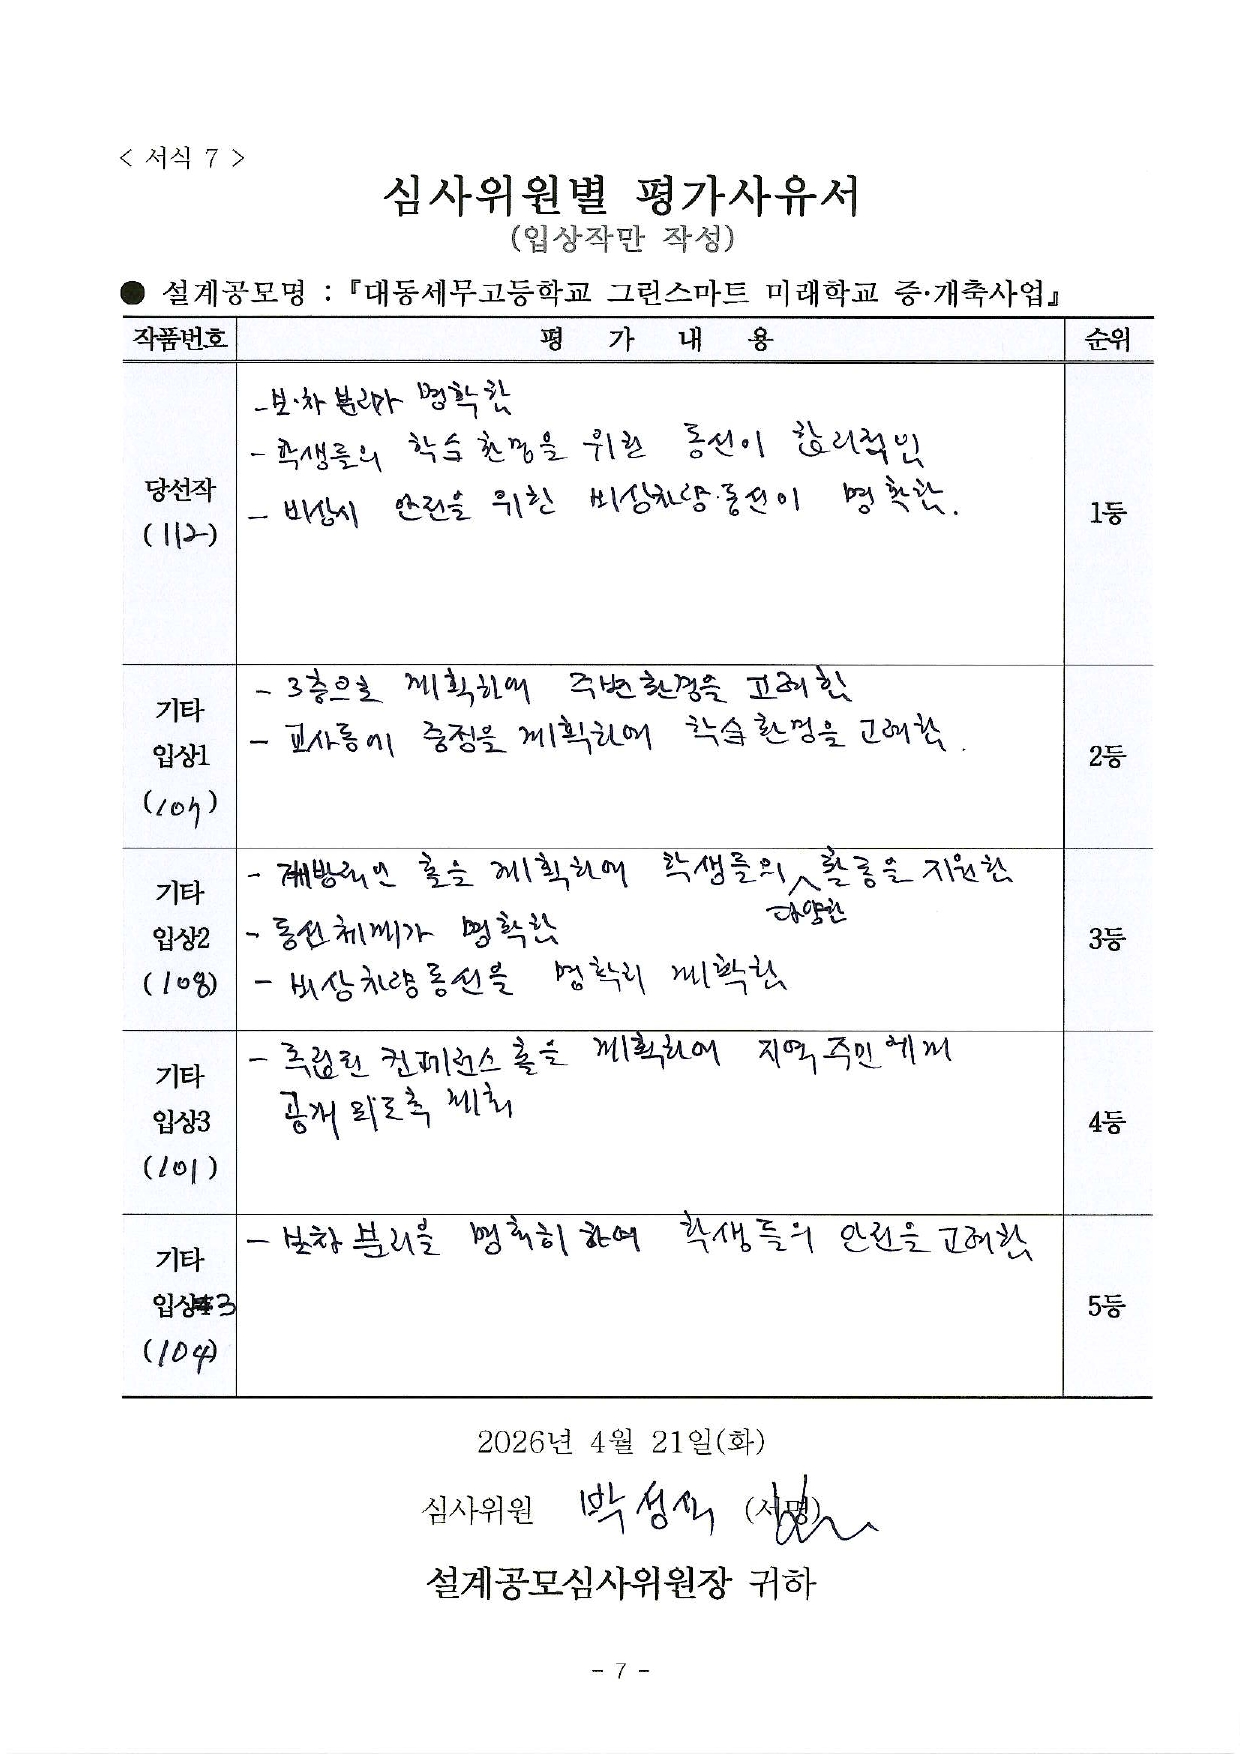 < 서식 7 >
심사위원별 평가사유서
(입상작만 작성)
● 설계공모명 : 『대동세무고등학교 그린스마트 미래학교 증·개축사업』
작품번호 평 가 내 용 순위
당선작
(112)
- 보·차 분리가 명확함
- 학생들의 학습 환경을 위한 동선이 합리적임
- 비상시 안전을 위한 비상차량·동선이 명확함.
1등
기타
입상1
(107)
- 3층으로 계획하여 주변환경을 고려함
- 교사동에 중정을 계획하여 학습환경을 고려함.
2등
기타
입상2
(108)
- 홀을 계획하여 학생들의 다양한 활동을 지원함
- 동선체계가 명확함
- 비상차량동선을 명확히 계획함
3등
기타
입상3
(101)
- 독립된 컨퍼런스홀을 계획하여 지역주민에게
공개 되도록 계획
4등
기타
입상 3
(104)
- 보차 분리를 명확히 하여 학생들의 안전을 고려함
5등
2026년 4월 21일(화)
심사위원 박성식 (서명)
설계공모심사위원장 귀하
- 7 -